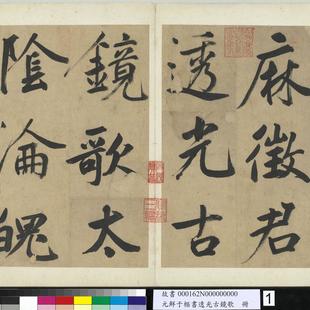 麻徵君
透光古
鏡歌太
陰淪魄
故書 000162N000000000
元鮮于樞書透光古鏡歌 冊
1